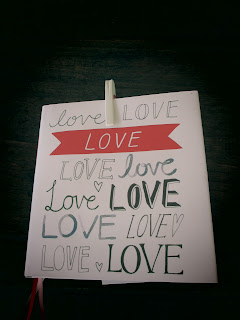 love LOVE
LOVE
LOVE love
Love LOVE
LOVE LOVE
LOVE LOVE